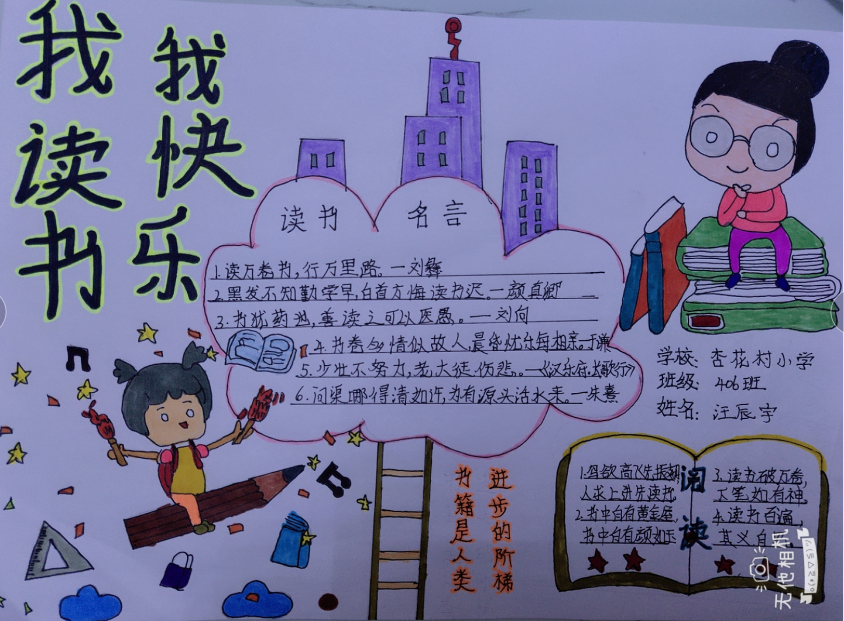 我读书
我快乐
读书名言
1.读万卷书,行万里路。—刘彝
2.黑发不知勤学早,白首方悔读书迟。—颜真卿
3.书犹药也,善读之可以医愚。—刘向
4.书卷多情似故人,晨昏忧乐每相亲。—于谦
5.少壮不努力,老大徒伤悲。—《汉乐府·长歌行》
6.问渠哪得清如许,为有源头活水来。—朱熹
学校:杏花村小学
班级:406班
姓名:汪辰宇
书籍是人类
进步的阶梯
阅读
1.鸟欲高飞先振翅
人求上进先读书
2.书中自有黄金屋
书中自有颜如玉
3.读书破万卷,
下笔如有神
4.读书百遍,
其义自
无他相机